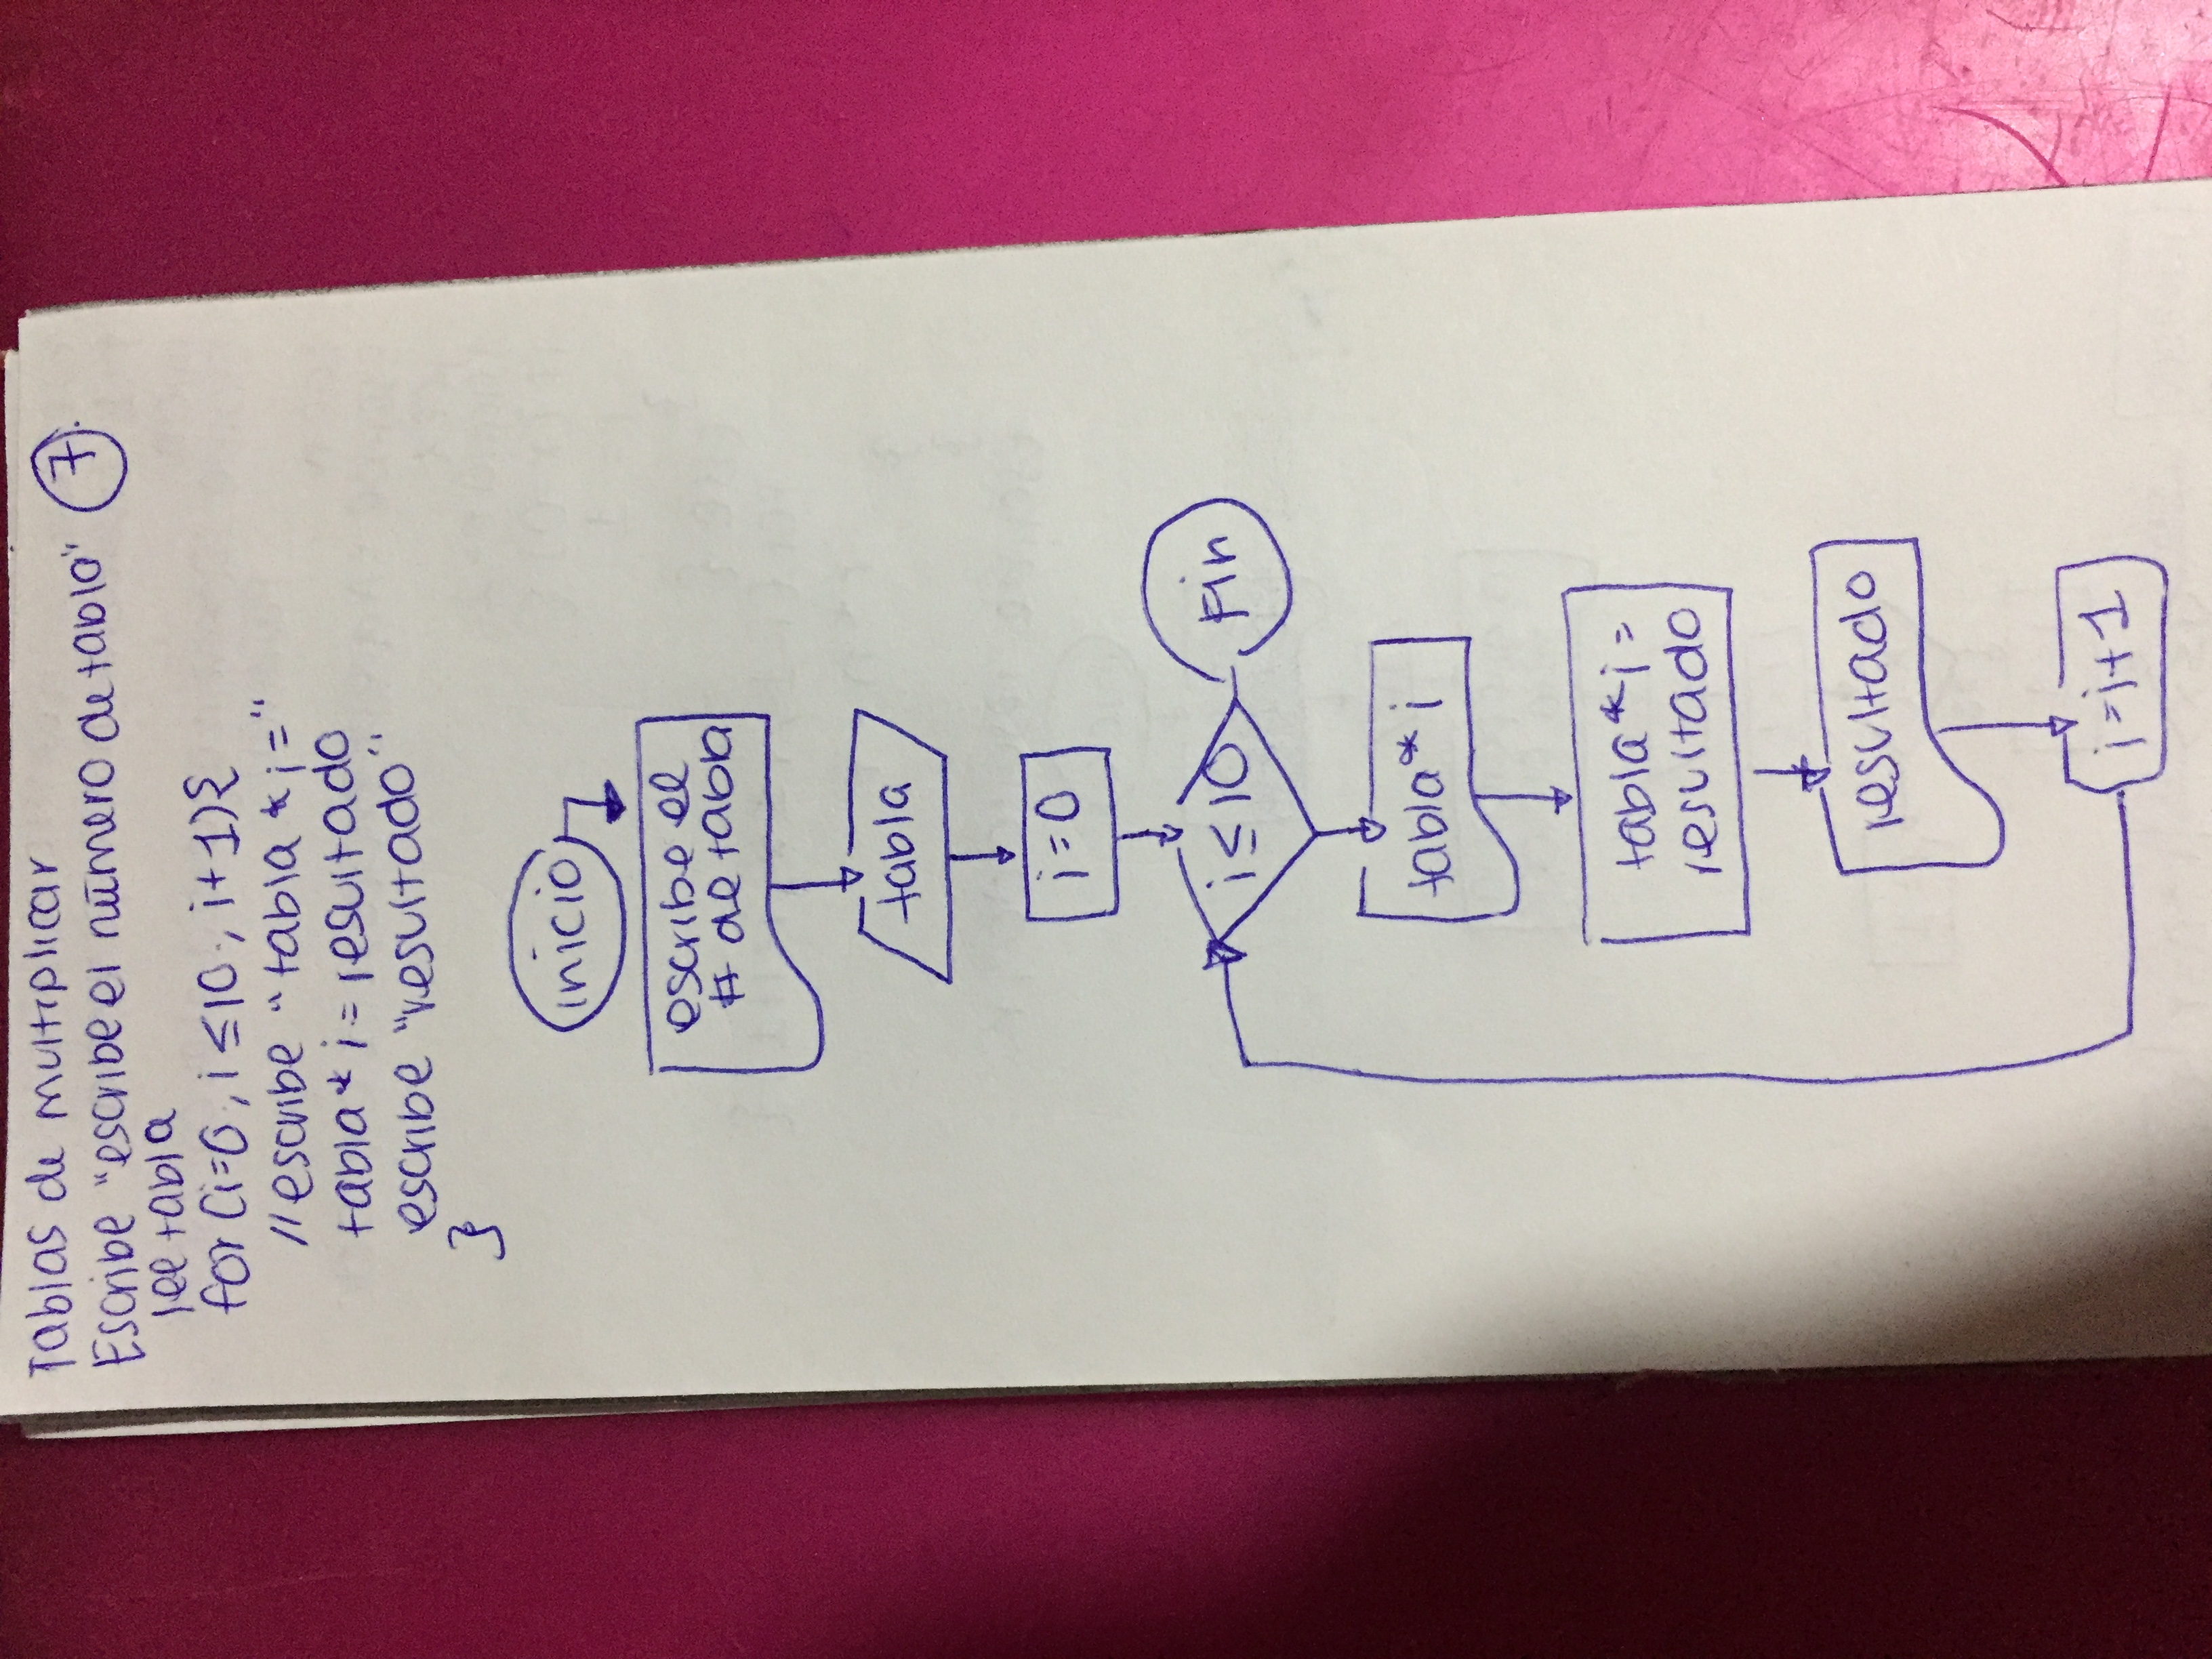 Tablas de multiplicar
Escribe "escribe el número de tabla" 7
lee tabla
for (i=0, i≤10, i+1){
//escribe "tabla * i="
tabla * i = resultado
escribe "resultado"
}
inicio
escribe el
# de tabla
tabla
i=0
i≤10
Fin
tabla * i
tabla * i =
resultado
resultado
i=i+1